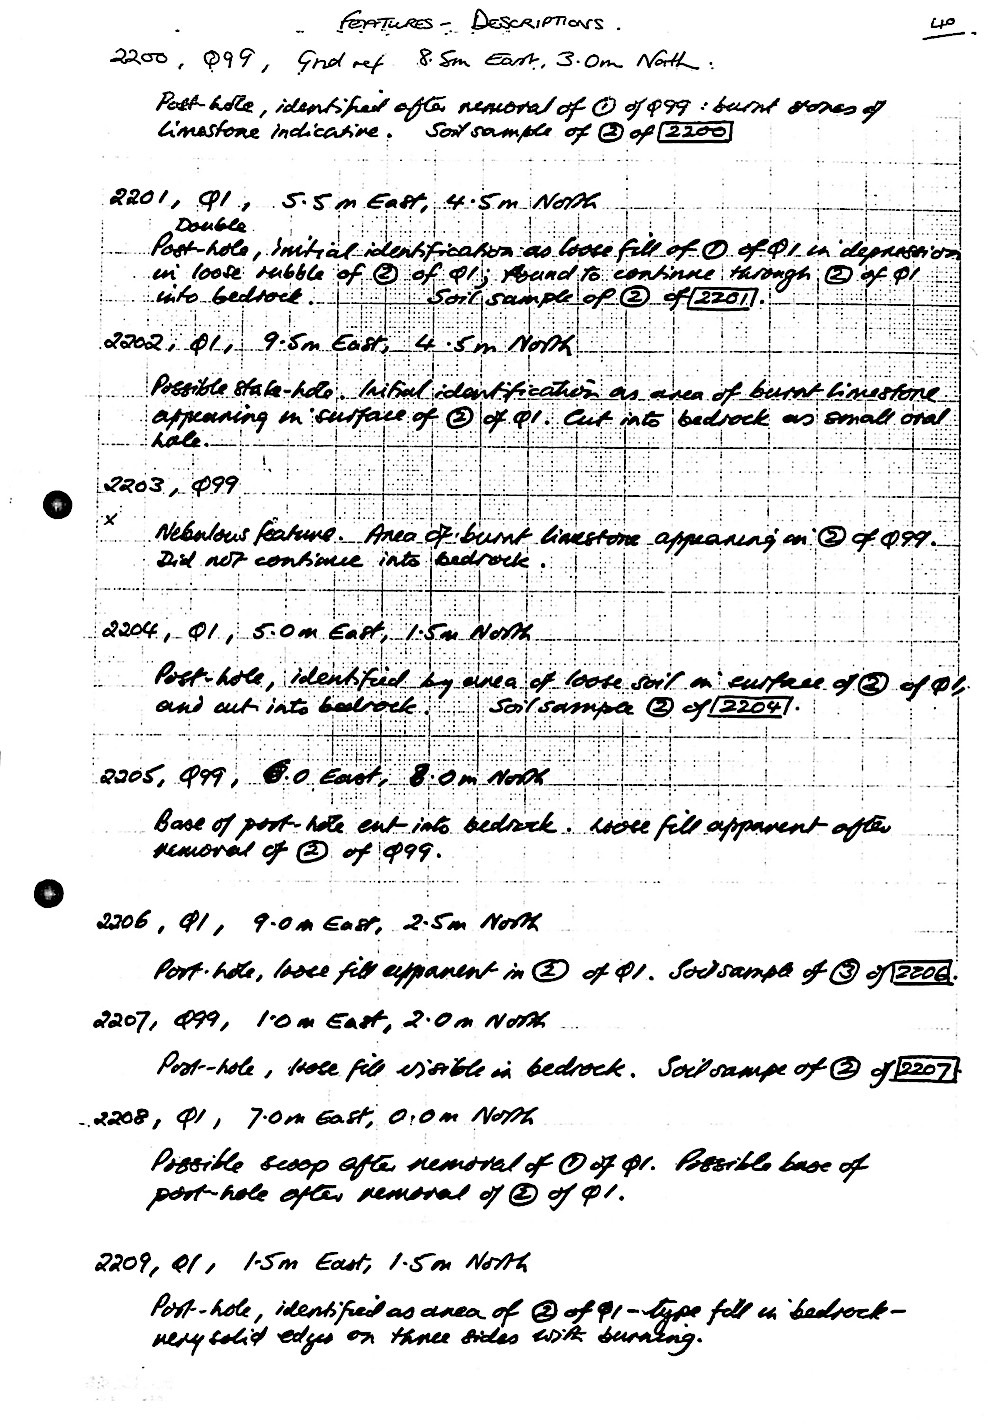 FEATURES - DESCRIPTIONS.
40
2200, Φ99, Grid ref 8.5m East, 3.0m North.
Post-hole, identified after removal of ① of Φ99: burnt stones of
limestone indicative. Soil sample of ② of 2200
2201, Φ1, 5.5m East, 4.5m North
Double
Post-hole, initial identification as loose fill of ① of Φ1 in depression
in loose rubble of ② of Φ1; found to continue through ② of Φ1
into bedrock. Soil sample of ② of 2201.
2202, Φ1, 9.5m East, 4.5m North
Possible stake-hole. Initial identification as area of burnt limestone
appearing in surface of ② of Φ1. Cut into bedrock as small oval
hole.
2203, Φ99
x
Nebulous feature. Area of burnt limestone appearing in ② of Φ99.
Did not continue into bedrock.
2204, Φ1, 5.0m East, 1.5m North
Post-hole, identified by area of loose soil in surface of ② of Φ1,
and cut into bedrock. Soil sample ② of 2204.
2205, Φ99, 6.0 East, 8.0m North
Base of post-hole cut into bedrock. Loose fill apparent after
removal of ② of Φ99.
2206, Φ1, 9.0m East, 2.5m North
Post-hole, loose fill apparent in ② of Φ1. Soil sample of ③ of 2206.
2207, Φ99, 1.0m East, 2.0m North
Post-hole, loose fill visible in bedrock. Soil sampe of ② of 2207.
2208, Φ1, 7.0m East, 0.0m North
Possible scoop after removal of ① of Φ1. Possible base of
post-hole after removal of ② of Φ1.
2209, Φ1, 1.5m East, 1.5m North
Post-hole, identified as area of ② of Φ1-type fill in bedrock-
very solid edges on three sides with burning.